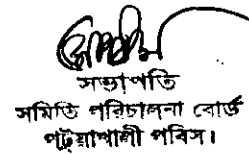 সভাপতি
সমিতি পরিচালনা বোর্ড
পটুয়াখালী পবিস।